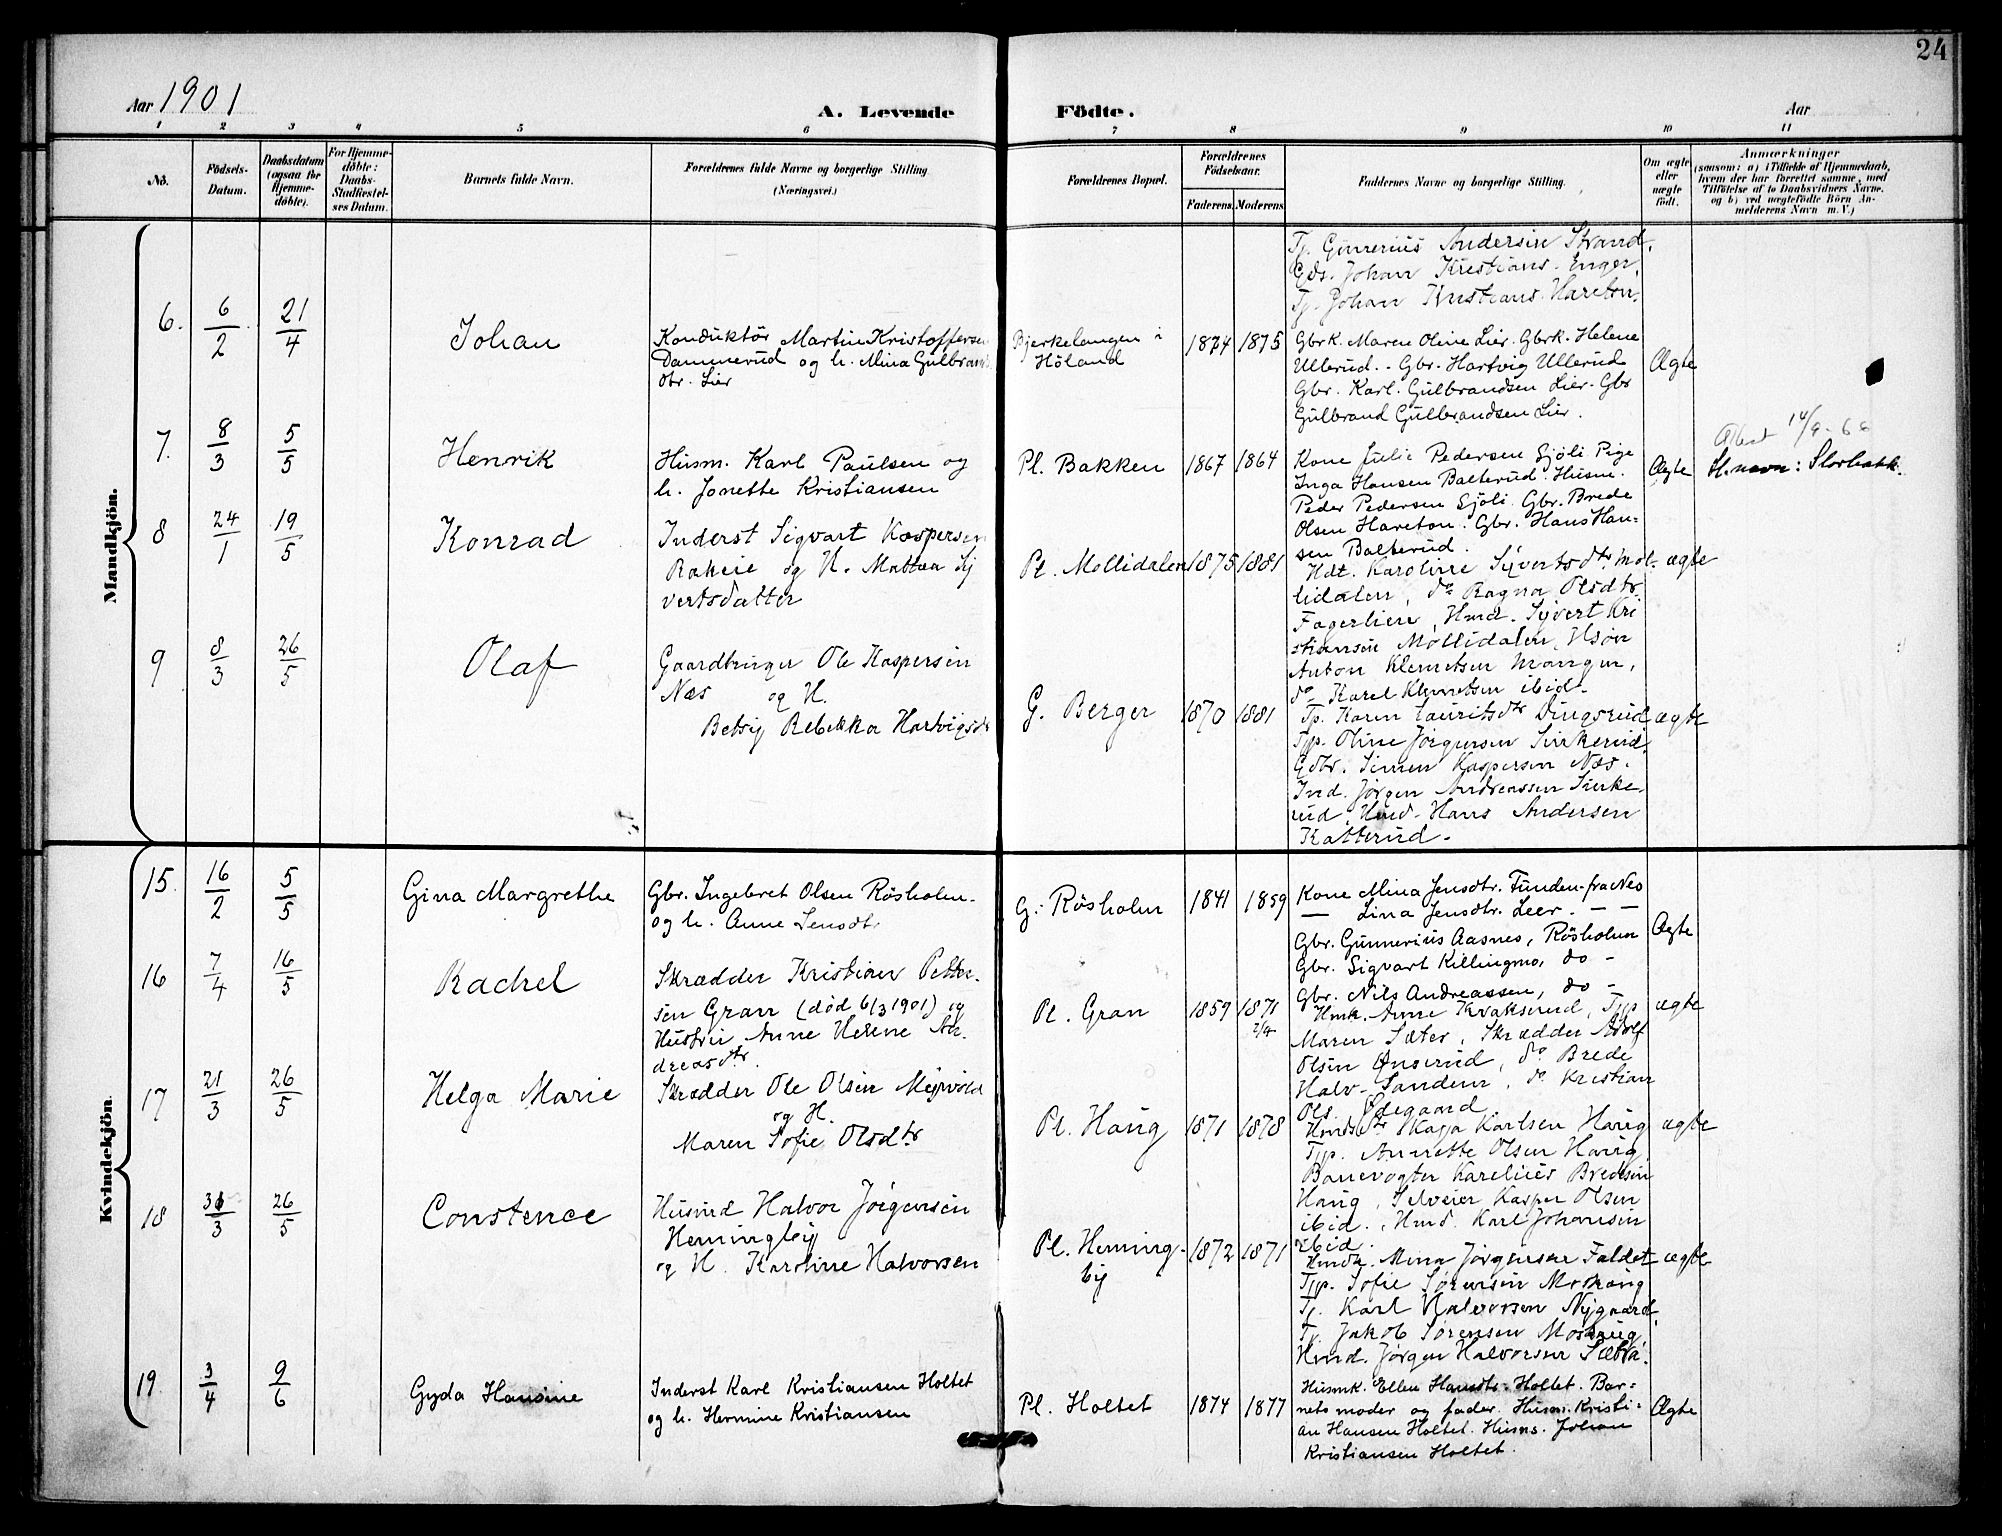 24
Aar 1901
A. Levende
Födte.
Aar
1 2 3 4 5 6 7 8 9 10 11
No.
Födsels-
Datum.
Daabsdatum
(ogsaa for
Hjemme-
döbte).
For Hjemme-
döbte:
Daabs-
Stadfæstel-
ses Datum.
Barnets fulde Navn.
Forældrenes fulde Navne og borgerlige Stilling
(Næringsvei.)
Forældrenes Bopæl.
Forældrenes
Födselsaar.
Faderens. Moderens.
Faddernes Navne og borgerlige Stilling.
Om ægte
eller
uægte
födt.
Anmærkninger
(saasom: a) i Tilfælde af Hjemmedaab,
hvem der har forrettet samme, med
Tilföielse af to Daabsvidners Navne,
og b) ved uægtefödte Börn An-
melderens Navn m. V.)
Mandkjön.
Tj. Gunerius Andersen Strand.
Gds. Johan Kristians. Enger.
Tj. Johan Kristians. Hareton.
6. 6/2 21/4 Johan
Konduktör Martin Kristoffersen
Dammerud og h. Mina Gulbrands
dtr. Lier
Bjerkelangen i
Höland
1874 1875
Gbrk. Maren Oline Lier. Gbrk. Helene
Ullerud. - Gbr. Hartvig Ullerud
Gbr. Karl Gulbrandsen Lier. Gbr
Gulbrand Gulbrandsen Lier.
Ægte
7. 8/3 5/5 Henrik
Husm. Karl Paulsen og
h. Jonette Kristiansen
Pl. Bakken 1867 1864
Kone Julie Pedersen Sjöli Pige
Inga Hansen Balterud. Husm.
Peder Pedersen Sjöli. Gbr. Brede
Olsen Hareton. Gbr. Hans Han=
sen Balterud.
Ægte
14/9-66
Sl.navn: Storbakk.
8 24/1 19/5 Konrad
Inderst Sigvart Kaspersen
Rakeie og H. Mattea Sy
vertsdatter
Pl. Mollidalen 1875 1881
Hdt. Karoline Syvertsdtr Mol-
lidalen, do Ragna Olsdtr
Fagerlien, Hmd. Syvert Kri
stiansen Mollidalen, Hsön
Anton Klemetsen Mangen,
do Karel Klemetsen ibid.
ægte
9 8/3 26/5 Olaf
Gaardbruger Ole Kaspersen
Næs og H.
Betsy Rebekka Hartvigsdtr
G. Berger 1870 1881
Tp. Karen Lauritsdtr Dingsrud
Tjp. Oline Jörgensen Sirikerud,
Gdbr. Simen Kaspersen Næs.
Ind. Jörgen Andreassen Sirike-
rud, Hmd. Hans Andersen
Katterud.
ægte
Kvindekjön.
15 16/2 5/5 Gina Margrethe
Gbr. Ingebret Olsen Rösholm.
og h. Anne Jensdtr.
G. Rösholm 1841 1859
Kone Mina Jensdtr. Funden-fra Nes
— Lina Jensdtr. Leer. — —
Gbr. Gunnerius Aasnes, Rösholm
Gbr. Sigvart Killingmo, do -
Gbr. Nils Andreassen, do -
Ægte
16 7/4 16/5 Rachel
Skrædder Kristian Petter-
sen Gran (död 6/3 1901) og
Hustru Anne Helene An
dreasdtr.
Pl. Gran 1859 1871
2/4
Hmk. Anne Kvakserud, Tjp
Maren Sæter, Skrædder Adolf
Olsen Onserud, do Brede
Halv. Sanden, do Kristian
Ols. Ödegaard
ægte
17 21/3 26/5 Helga Marie
Skrædder Ole Olsen Mejvold
og H.
Maren Sofie Olsdtr
Pl. Haug 1871 1878
Kaja Karlsen Haug
Tjp. Annette Olsen Haug,
Banevogter Karelius Bredesen
Haug, Selveier Kasper Olsen
ibid., Hmd. Karl Johansen
ibid.
ægte
18 31/3 26/5 Constence
Husmd Halvor Jörgensen
Hemingby
og H. Karoline Halvorsen
Pl. Heming-
by
1872 1871
Hmdk. Mina Jörgensen Faldet
Tjp. Sofie Sörensen Moshaug
Tj. Karl Halvorsen Nygaard,
Tj. Jakob Sörensen Moshaug,
Hmd. Jörgen Halvorsen Sætra.
ægte
19. 3/4 9/6 Gyda Hansine
Inderst Karl Kristiansen Holtet
og h. Hermine Kristiansen
Pl. Holtet 1874 1877
Husmk. Ellen Hansdtr. Holtet. Bar=
nets moder og fader. Husm. Kristi-
an Hansen Holtet. Husms. Johan
Kristiansen Holtet.
Ægte